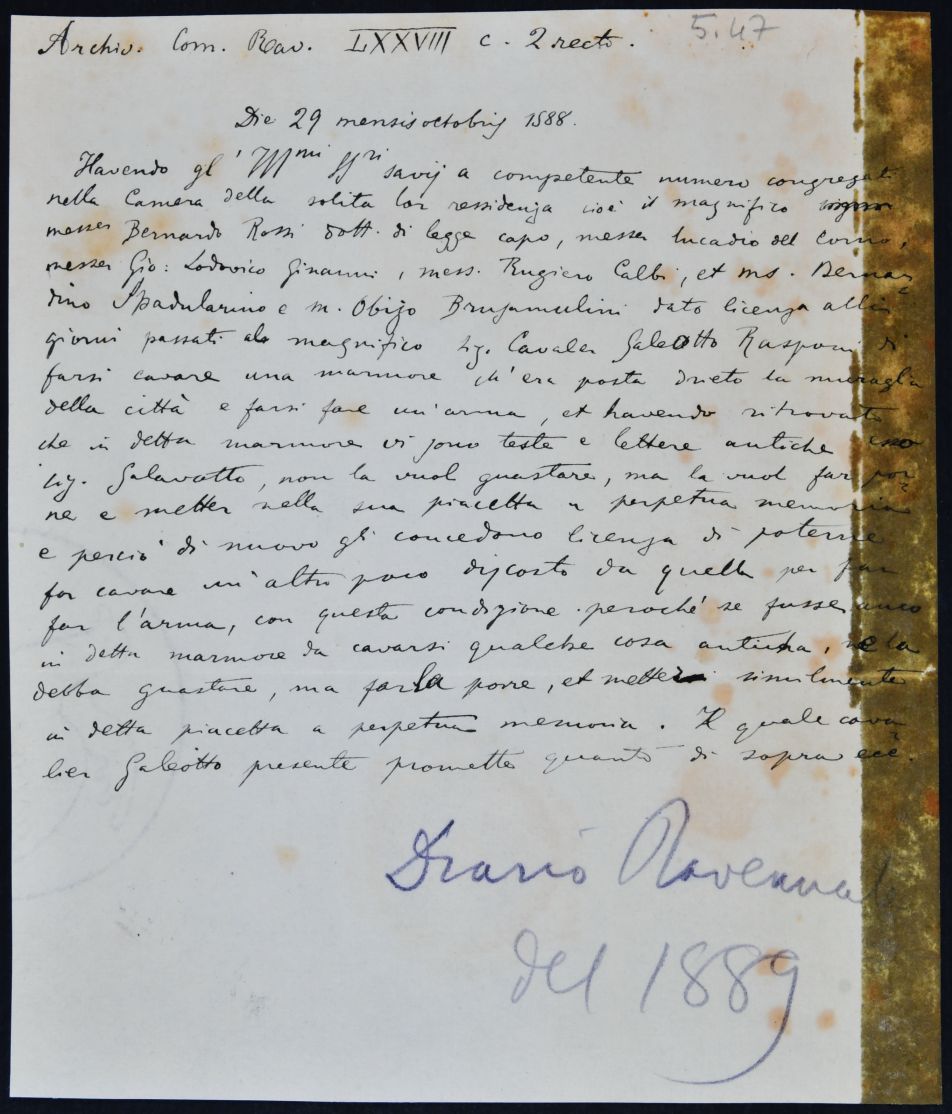 5.47
Archiv. Com. Rav. LXXVIII c. 2 recto.
Die 29 mensis octobris 1588.
Havendo gl' Ill^mi SS^ri savij a competente numero congregati
nella Camera della solita lor ressidenza cioè il magnifico
messer Bernardo Rossi dott. di legge capo, messer Lucadio del Corno,
messer Gio: Lodovico Ginanni, mess. Rugiero Calbi, et ms. Bernar
dino Spadularino e m. Obizo dato licenza alli
giorni passati al magnifico sig. Cavaler Galeotto Rasponi di
farsi cavare una marmore ch'era posta drieto la muraglia
della città e farsi fare un'arma, et havendo ritrovato
che in detta marmore vi sono teste e lettere antiche esso
sig. Galavotto, non la vuol guastare, ma la vuol far por
re e metter nella sua piacetta a perpetua memoria
e perciò di nuovo gli concedono licenza di poterne
far cavare un'altro poco discosto da quella per far
far l'arma, con questa condizione perochè se fusse anco
in detta marmore da cavarsi qualche cosa anticha, ne la
debba guastare, ma farla porre, et mettersi similmente
in detta piacetta a perpetua memoria. Il quale cava
lier Galeotto presente promette quanto di sopra ecc.
Diario Ravennate
del 1889